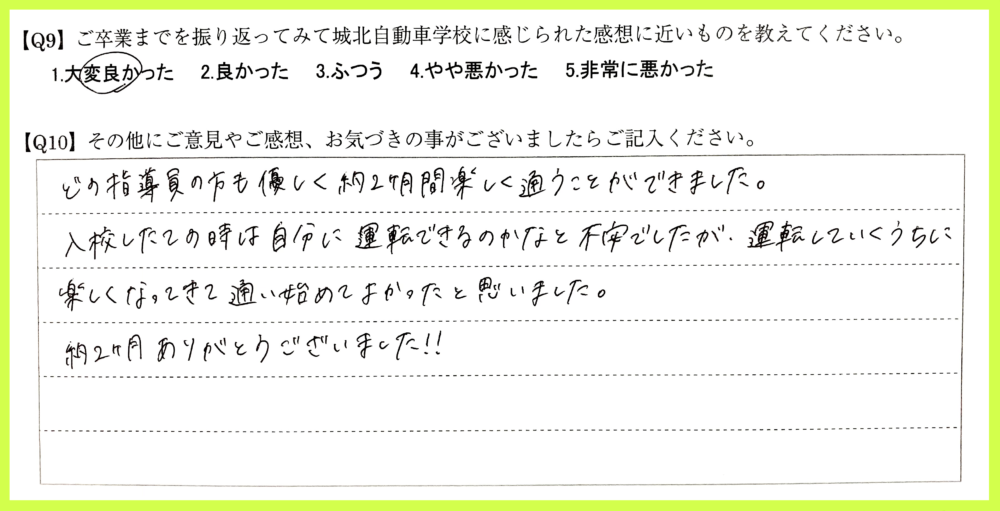 【Q9】ご卒業までを振り返ってみて城北自動車学校に感じられた感想に近いものを教えてください。
1.大変良かった 2.良かった 3.ふつう 4.やや悪かった 5.非常に悪かった
【Q10】その他にご意見やご感想、お気づきの事がございましたらご記入ください。
どの指導員の方も優しく約2ヶ月間楽しく通うことができました。
入校したての時は自分に運転できるのかなと不安でしたが、運転していくうちに
楽しくなってきて通い始めてよかったと思いました。
約2ヶ月ありがとうございました!!